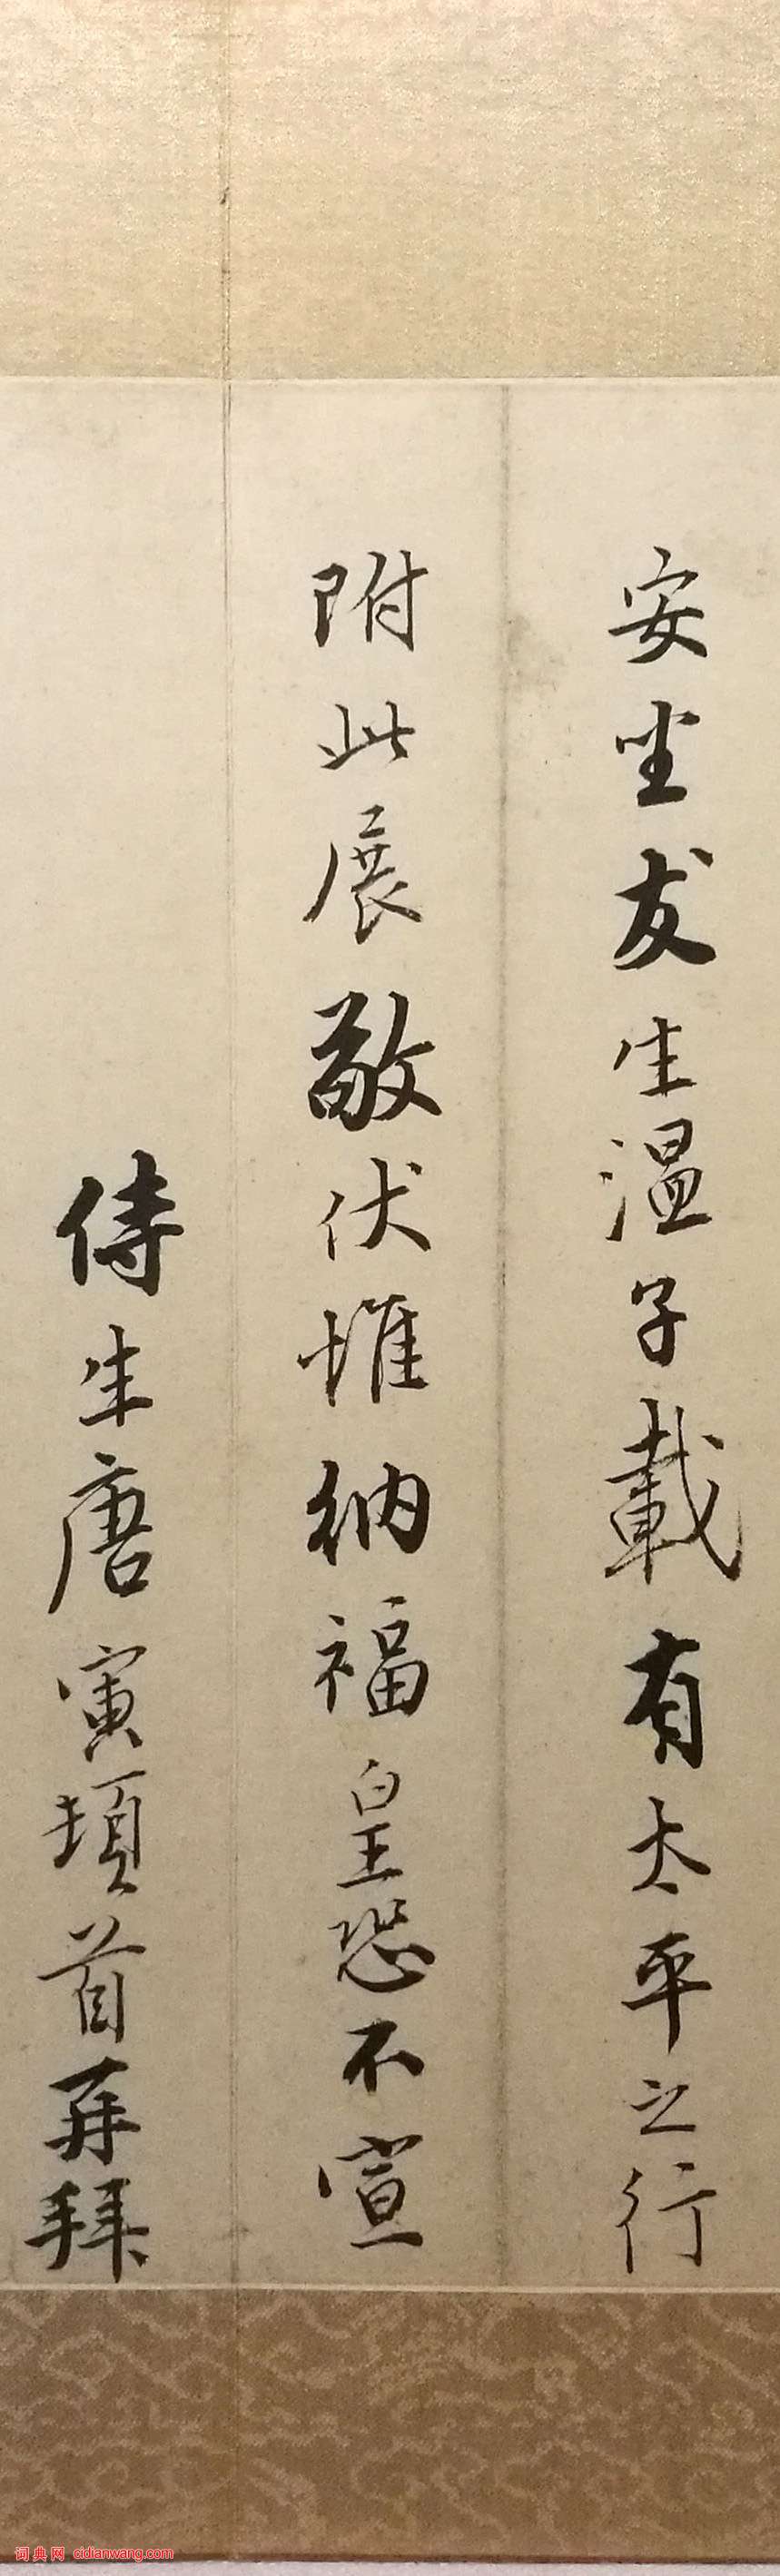 安坐友生温子載有太平之行
附此展敬伏惟納福皇恐不宣
侍生唐寅頓首再拜
词典网 cidianwang.com